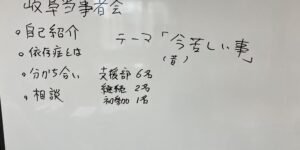 岐阜当事者会
○自己紹介
○依存症とは
○分かち合い
○相談
テーマ「今苦しい事」
(昔)
支援部 6名
継続 2名
初参加 1名